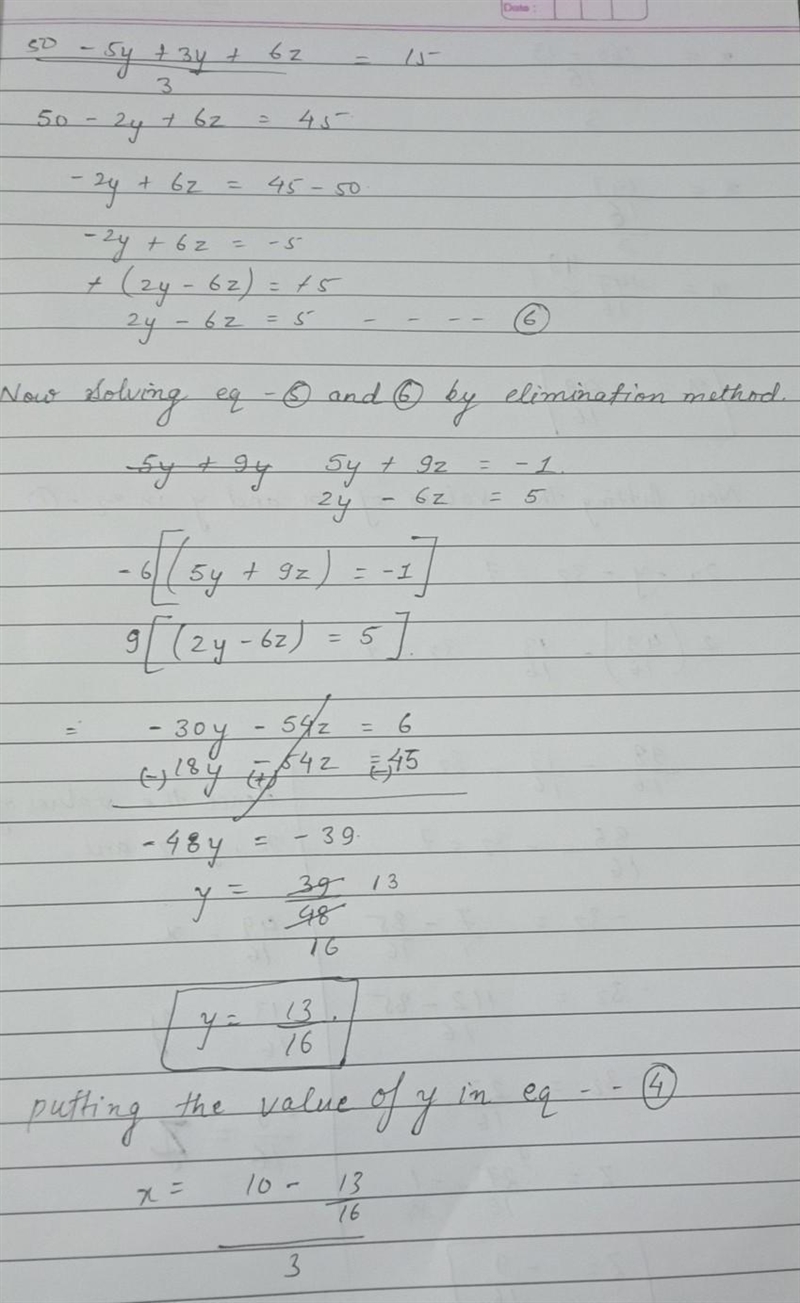 Date :
50 - 5y + 3y + 6z = 15
3
50 - 2y + 6z = 45
-2y + 6z = 45 - 50
-2y + 6z = -5
+ (2y - 6z) = +5
2y - 6z = 5 - - - - ⑥
Now solving eq - ⑤ and ⑥ by elimination method.
5y + 9y 5y + 9z = -1.
2y - 6z = 5
-6[(5y + 9z) = -1]
9[(2y - 6z) = 5].
= -30y - 54z = 6
(-) 18y (+) - 54z (-) = 45
-48y = -39.
y = 39 13
48
16
y = 13.
16
putting the value of y in eq - - ④
x = 10 - 13
16
3